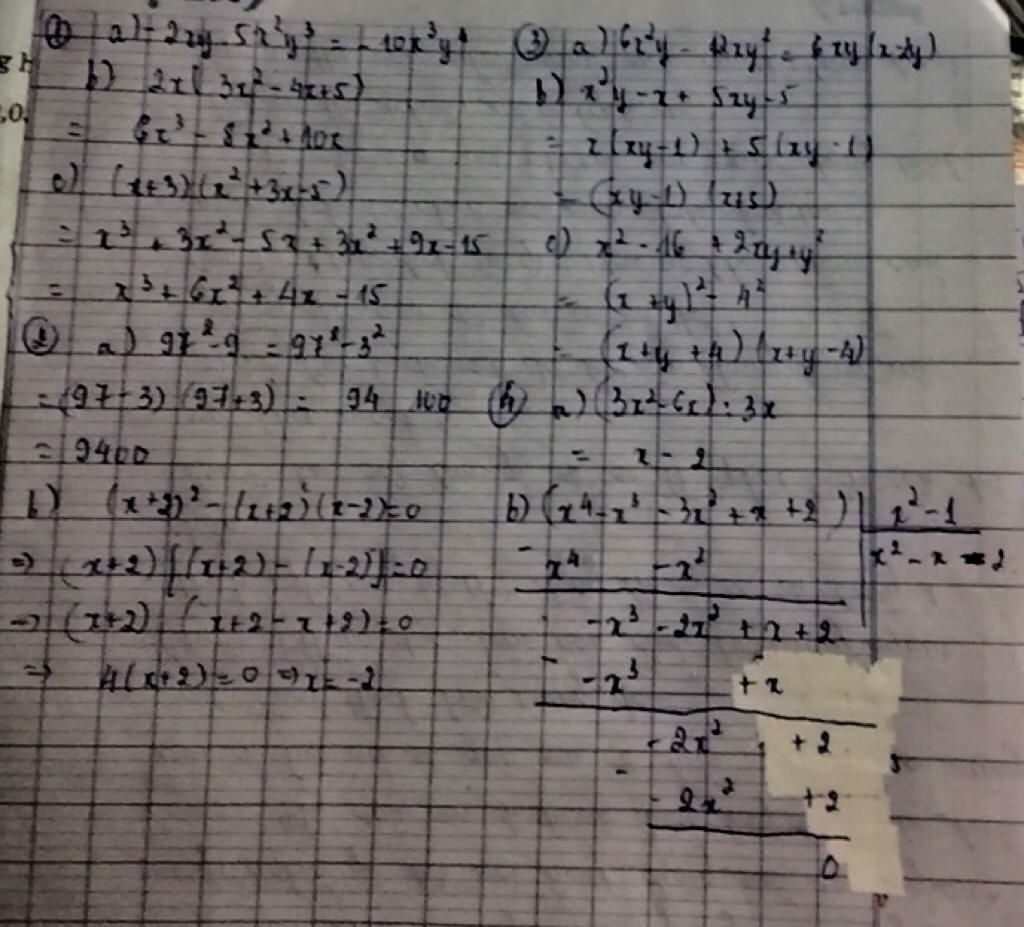 ① a) -2xy 5x²y³ = -10x³y⁴
b) 2x(3x²-4x+5)
= 6x³ - 8x² + 10x
c) (x+3)(x²+3x-5)
= x³ + 3x² - 5x + 3x² + 9x - 15
= x³ + 6x² + 4x - 15
② a) 97²-9 = 97²-3²
= (97-3) (97+3) = 94 100
= 9400
b) (x+2)² - (x+2)(x-2)=0
=> (x+2) [(x+2) - (x-2)]=0
=> (x+2) (x+2-x+2)=0
=> 4(x+2)=0 => x=-2
③ a) 6x²y - 12xy² = 6xy(x-2y)
b) x²y - x + 5xy - 5
= x(xy-1) + 5(xy-1)
= (xy-1) (x+5)
c) x² - 16 + 2xy + y²
= (x+y)² - 4²
= (x+y+4) (x+y-4)
④ a) (3x²-6x) : 3x
= x - 2
b) (x⁴ - x³ - 3x² + x + 2) x² - 1
- x⁴ - x² x² - x - 2
-x³ - 2x² + x + 2
- -x³ + x
-2x² + 2
- -2x² + 2
0